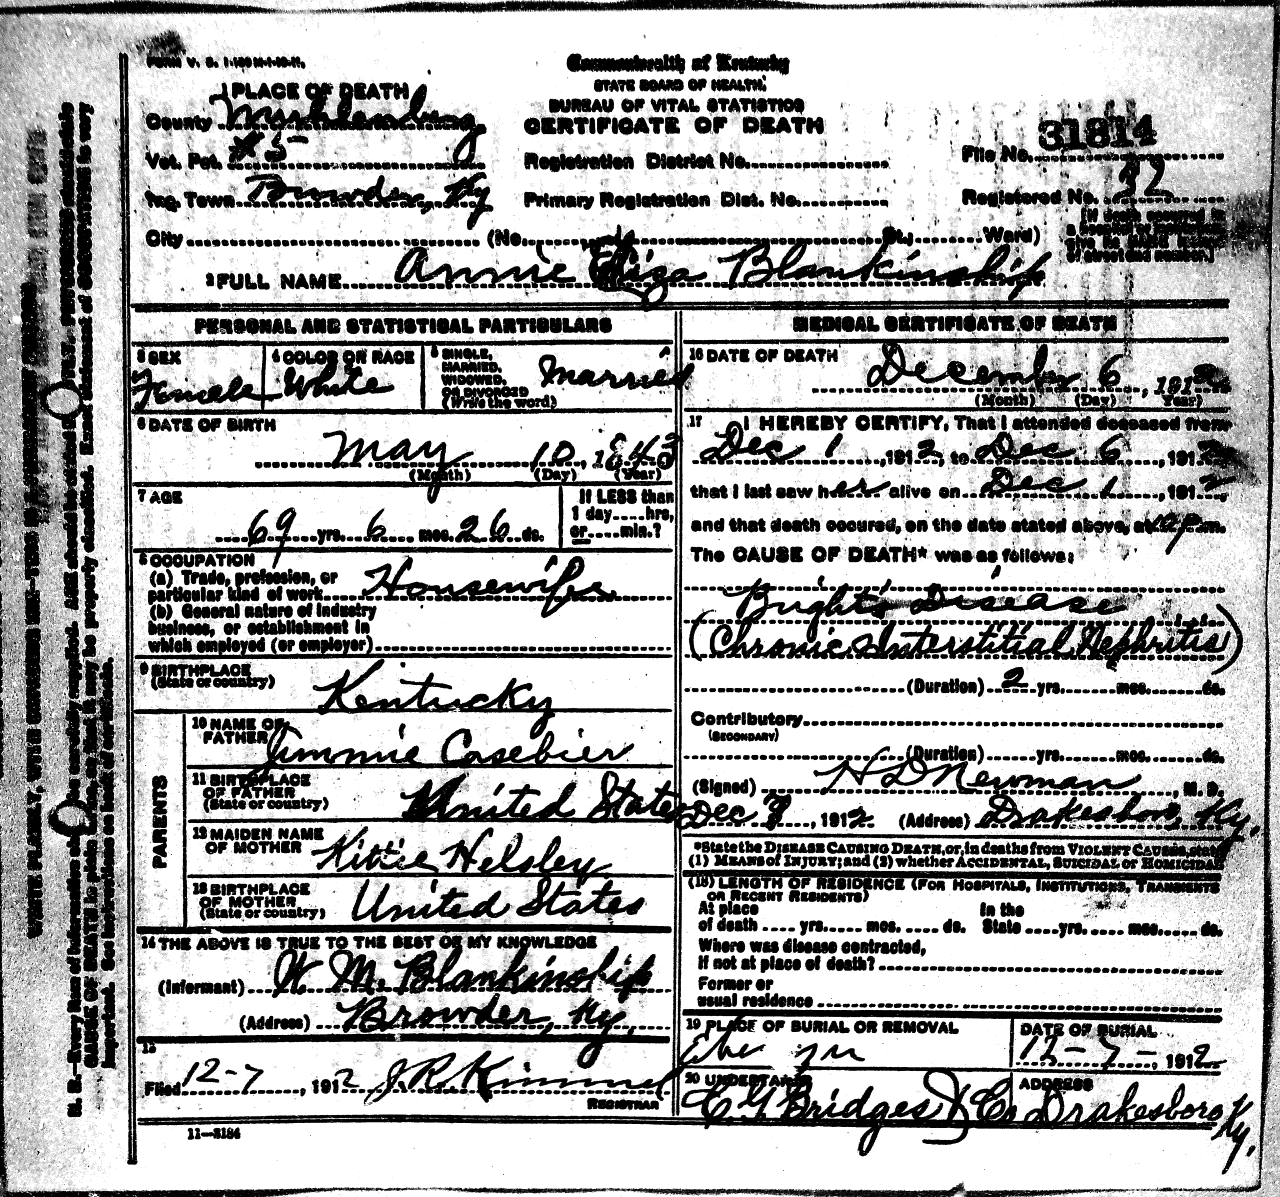 FORM V. S. 1-
Commonwealth of Kentucky
STATE BOARD OF HEALTH.
BUREAU OF VITAL STATISTICS
CERTIFICATE OF DEATH
1 PLACE OF DEATH
County Muhlenburg
Vot. Pct. #5
Inc. Town Browder, Ky
City (No. St.; Ward)
Registration District No.
Primary Registration Dist. No.
File No. 31814
Registered No. 32
[If death occurred in
a hospital or institution,
give its NAME instead
of street and number.]
2 FULL NAME Annie Eliza Blankinship
PERSONAL AND STATISTICAL PARTICULARS
3 SEX
Female
4 COLOR OR RACE
White
5 SINGLE,
MARRIED,
WIDOWED,
OR DIVORCED
(Write the word)
Married
6 DATE OF BIRTH
May 10, 1843
(Month) (Day) (Year)
7 AGE
69 yrs. 6 mos. 26 ds.
If LESS than
1 day....hrs,
or....min.?
8 OCCUPATION
(a) Trade, profession, or
particular kind of work Housewife
(b) General nature of industry
business, or establishment in
which employed (or employer)
9 BIRTHPLACE
(State or country)
Kentucky
PARENTS
10 NAME OF
FATHER
Jimmie Casebier
11 BIRTHPLACE
OF FATHER
(State or country)
United States
12 MAIDEN NAME
OF MOTHER
Kittie Helsley
13 BIRTHPLACE
OF MOTHER
(State or country)
United States
14 THE ABOVE IS TRUE TO THE BEST OF MY KNOWLEDGE
(Informant) W. M. Blankinship
(Address) Browder, Ky.
15
Filed 12-7, 1912 J R Kimmel
REGISTRAR
11-3184
MEDICAL CERTIFICATE OF DEATH
16 DATE OF DEATH
December 6, 1912
(Month) (Day) Year)
17 I HEREBY CERTIFY, That I attended deceased from
Dec 1, 1912, to Dec 6, 1912
that I last saw her alive on Dec 1, 1912,
and that death occured, on the date stated above, at m.
The CAUSE OF DEATH* was as follows:
Bright's Disease
(Chronic Interstitial Nephritis)
(Duration) 2 yrs. mos. ds.
Contributory
(SECONDARY)
(Duration) yrs. mos. ds.
(Signed) H D Newman, M. D.
Dec 7, 1912 (Address) Drakesboro, Ky.
*State the DISEASE CAUSING DEATH, or, in deaths from VIOLENT CAUSES, state
(1) MEANS of INJURY; and (2) whether ACCIDENTAL, SUICIDAL or HOMICIDAL
(18) LENGTH OF RESIDENCE (FOR HOSPITALS, INSTITUTIONS, TRANSIENTS
OR RECENT RESIDENTS)
At place
of death .... yrs. .... mos. .... ds.
In the
State .... yrs. .... mos. .... ds.
Where was disease contracted,
If not at place of death?
Former or
usual residence
19 PLACE OF BURIAL OR REMOVAL
DATE OF BURIAL
12-7-, 1912
20 UNDERTAKER
C Y Bridges & Co
ADDRESS
Drakesboro Ky.